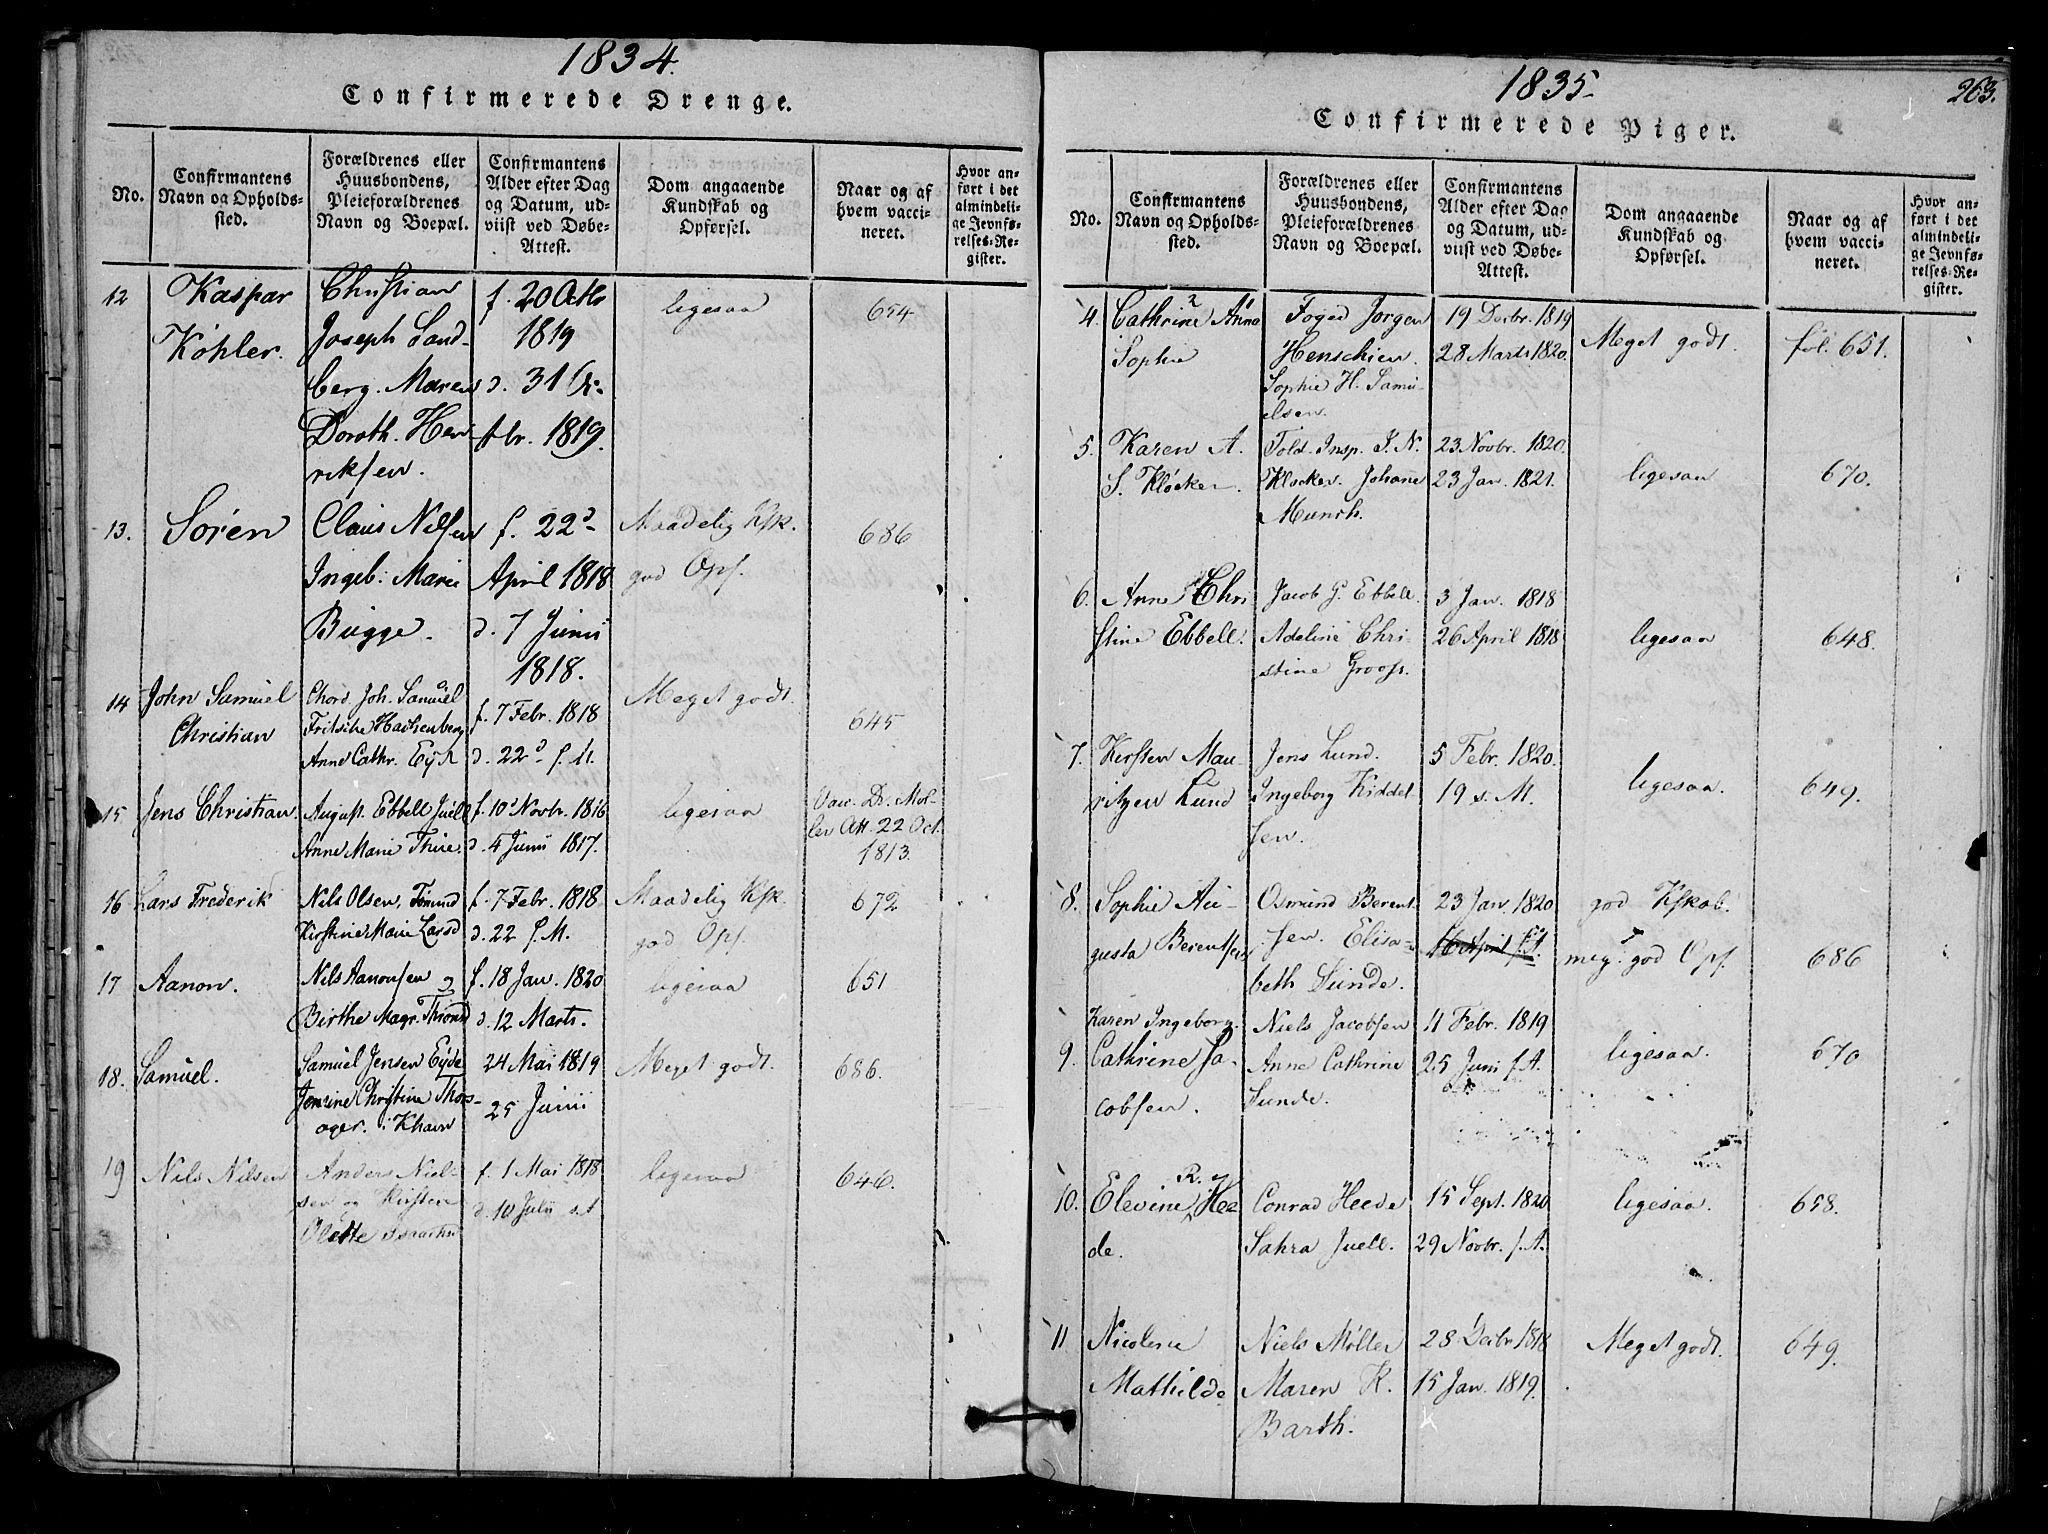 1834.
Confirmerede Drenge.
No.
Confirmantens
Navn og Opholds-
sted.
Forældrenes eller
Huusbondens,
Pleieforældrenes
Navn og Boepæl.
Confirmantens
Alder efter Dag
og Datum, ud-
viist ved Døbe-
Attest.
Dom angaaende
Kundskab og
Opførsel.
Naar og af
hvem vacci-
neret.
Hvor an-
ført i det
almindeli-
ge Jevnfø-
relses-Re-
gister.
12
Kaspar
Köhler.
Christian
Joseph Land-
berg. Maren
Doroth. Hen-
riksen.
f. 20 Octbr
1819
d. 31
1819.
ligesaa
654
13.
Sören
Claus Nilsen
Ingeb. Marie
Bugge.
f. 22d
April 1818
d. 7 Junii
1818.
Maadelig Ksk.
god Opf.
686
14
John Samuel
Christian
Chord. Joh. Samuel
Fritsche Hachenberg
Anne Cathr. Eyde
f. 7 Febr. 1818
d. 22d s. M.
Meget godt.
645
15
Jens Christian
August. Ebbell Juell
Anne Marie Thue.
f. 10d Novbr. 1816
d. 4 Junii 1817.
ligesaa
Vacc. Dr. Mol-
ler Att. 22 Oct.
1813.
16
Lars Frederik
Nils Olsen,
Kirstine Marie Larsd
f. 7 Febr. 1818
d. 22 s. M.
Maadelig Ksk
god Opf.
672
17
Aanon.
Nils Aanonsen
Birthe Magr.
f. 18 Jan. 1820
d. 12 Marts.
ligesaa
651
18.
Samuel.
Samuel Jensen Eyde
Christine
i Khavn
24 Mai 1819
25 Junii
Meget godt.
686.
19
Nils Nilsen
Anders Niel-
sen og Kirstine
Olette
f. 1 Mai 1818
d. 10 Julii s. A
ligesaa
646.
1835
263.
Confirmerede Piger.
No.
Confirmantens
Navn og Opholds-
sted.
Forældrenes eller
Huusbondens,
Pleieforældrenes
Navn og Boepæl.
Confirmantens
Alder efter Dag
og Datum, ud-
viist ved Døbe-
Attest.
Dom angaaende
Kundskab og
Opførsel.
Naar og af
hvem vacci-
neret.
Hvor an-
ført i det
almindeli-
ge Jevnfø-
relses-Re-
gister.
4.
Cathrine Anna
Sophie
Foged Jørgen
Henschien.
Sophie H. Samu-
elsen.
19 Decbr. 1819
28 Marts 1820.
Meget godt.
fol. 651.
5.
Karen A.
S. Klöcker.
Told. Insp. J. N.
Klocker. Johane
Munch.
23 Novbr. 1820.
23 Jan. 1821.
ligesaa
670.
6.
Anne Chri
stine Ebbell.
Jacob G. Ebbell.
Adeline Chri-
stine Groos.
3 Jan. 1818
26 April 1818
ligesaa
648.
7.
Kirsten Mau
ritzen Lund
Jens Lund.
Ingeborg Kiddel
sen.
5 Febr. 1820.
19 s. M.
ligesaa
649.
8.
Sophie Au-
gusta Berentsen
Osmund Berent
sen. Elisa-
beth Sunde.
23 Jan. 1820
16 April s. A.
god Kskab.
meg. god Opf.
686
9.
Karen Ingeborg
Cathrine Ja-
cobsen.
Niels Jacobsen
Anne Cathrine
Sunde.
11 Febr. 1819
25 Juni s. A.
ligesaa.
670
10.
R.
Elevine Hee
de.
Conrad Heede
Sahra Juell.
15 Sept. 1820
29 Novbr. s. A.
ligesaa.
658.
11
Nicoline
Mathilde
Niels Møller
Maren K.
Barth.
28 Decbr 1818
15 Jan. 1819.
Meget godt.
649.